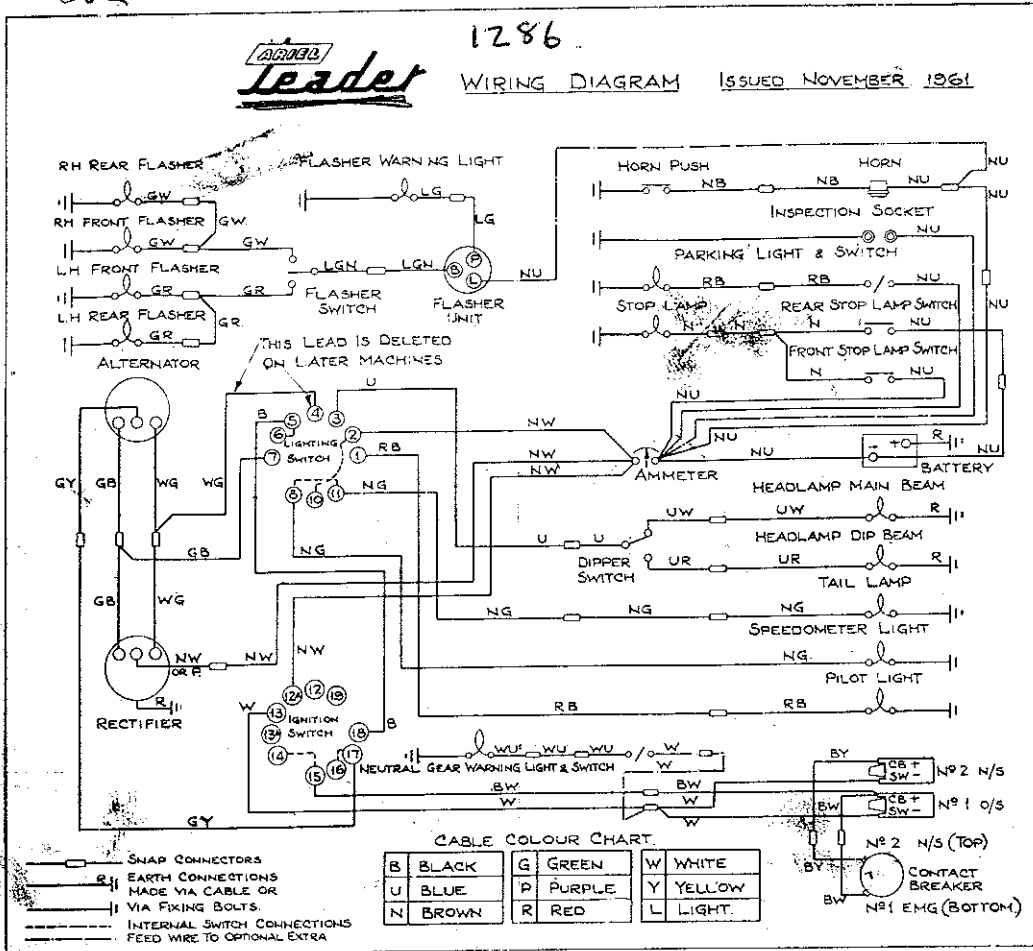 1286
ARIEL
Leader
WIRING DIAGRAM ISSUED NOVEMBER 1961
RH REAR FLASHER
GW
RH FRONT FLASHER
GW
GW
GW
LH FRONT FLASHER
GR
GR
LH REAR FLASHER
GR
GR
FLASHER WARNING LIGHT
LG
LG
LGN
LGN
FLASHER
SWITCH
B
P
L
FLASHER
UNIT
NU
HORN PUSH
HORN
NU
NB
NB
NU
INSPECTION SOCKET
NU
PARKING LIGHT & SWITCH
RB
RB
NU
NU
STOP LAMP
REAR STOP LAMP SWITCH
N
N
N
NU
FRONT STOP LAMP SWITCH
N
NU
NU
NU
ALTERNATOR
THIS LEAD IS DELETED
ON LATER MACHINES
U
B
5
4
3
6
2
LIGHTING
SWITCH
7
1
8
10
11
NW
RB
NW
NW
NG
AMMETER
NU
R
NU
BATTERY
GY
GB
WG
WG
GB
NG
GB
WG
HEADLAMP MAIN BEAM
UW
UW
R
HEADLAMP DIP BEAM
U
U
DIPPER
SWITCH
UR
UR
R
TAIL LAMP
NG
NG
NG
SPEEDOMETER LIGHT
NG
PILOT LIGHT
RB
RB
NW
OR P.
NW
NW
R
RECTIFIER
W
12A
12
19
13
IGNITION
SWITCH
13A
18
B
14
17
16
15
WU
WU
WU
W
W
NEUTRAL GEAR WARNING LIGHT & SWITCH
BW
W
W
W
GY
BY
CB +
SW -
Nº 2 N/S
BW
CB +
SW -
Nº 1 O/S
Nº 2 N/S (TOP)
BY
CONTACT
BREAKER
BW
Nº 1 EMG (BOTTOM)
SNAP CONNECTORS
R
EARTH CONNECTIONS
MADE VIA CABLE OR
VIA FIXING BOLTS.
INTERNAL SWITCH CONNECTIONS
FEED WIRE TO OPTIONAL EXTRA
CABLE COLOUR CHART
B BLACK G GREEN W WHITE
U BLUE P PURPLE Y YELLOW
N BROWN R RED L LIGHT.